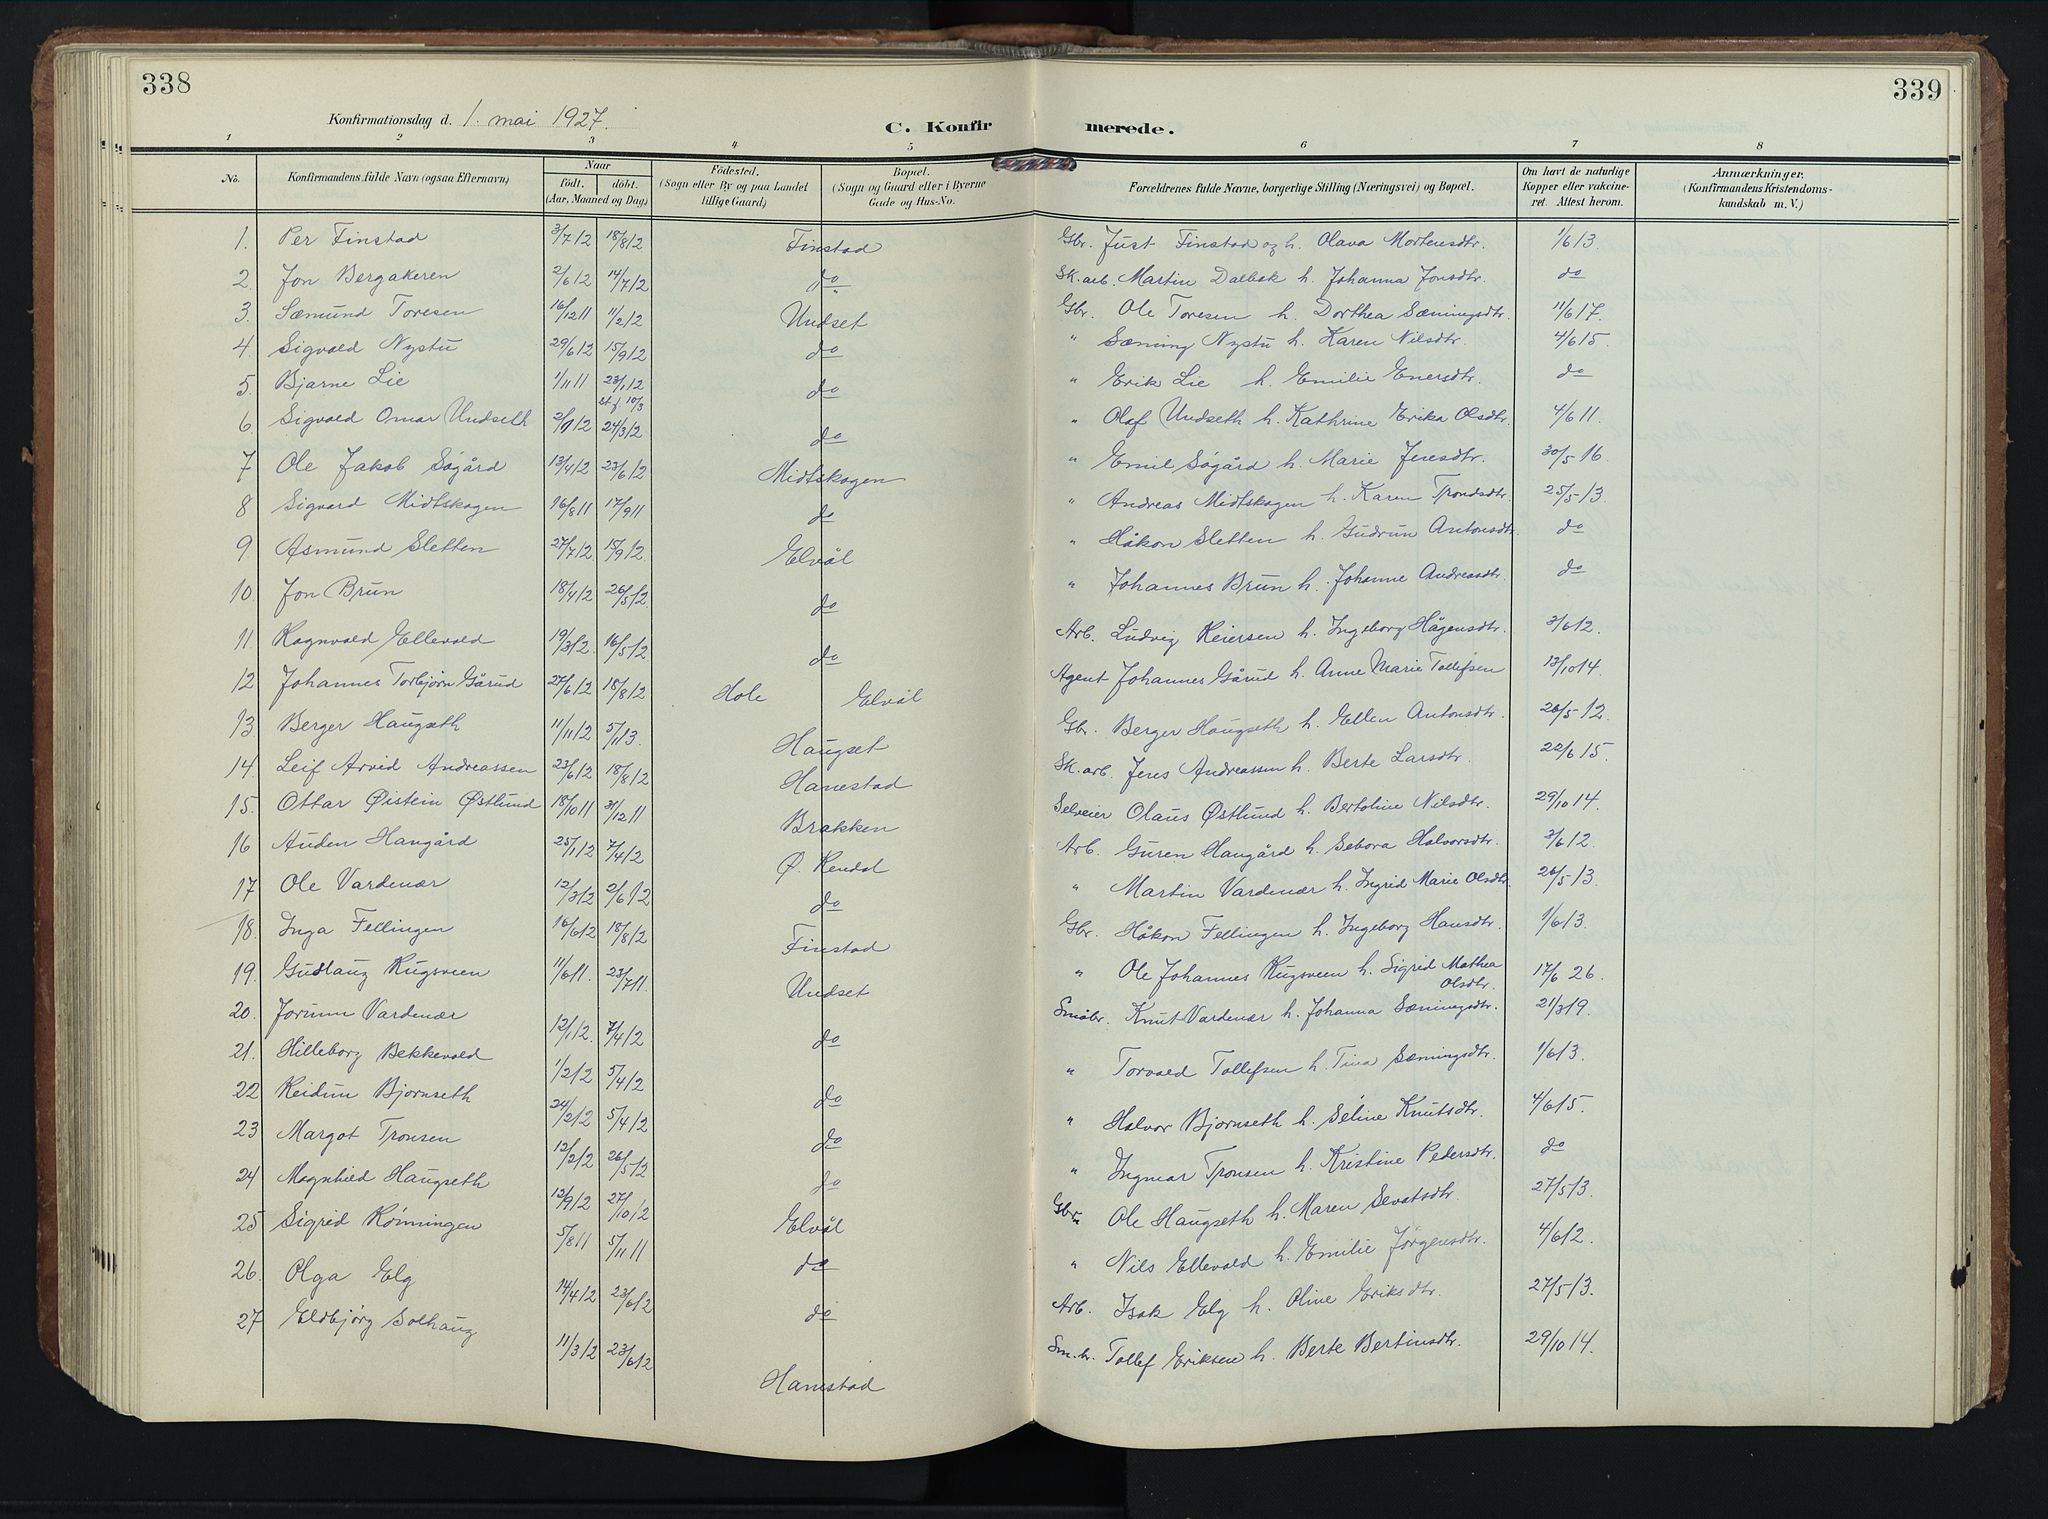 338
339
Konfirmationsdag d. 1. mai 1927.
C. Konfirmerede.
1 2 3 4 5 6 7 8
No.
Konfirmandens fulde Navn (ogsaa Efternavn)
Naar
födt. döbt.
(Aar, Maaned og Dag)
Födested.
(Sogn eller By og paa Landet
tillige Gaard)
Bopæl.
(Sogn og Gaard eller i Byerne
Gade og Hus-No.
Forældrenes fulde Navne, borgerlige Stilling (Næringsvei) og Bopæl.
Om havt de naturlige
Kopper eller vakcine-
ret. Attest herom.
Anmærkninger.
(Konfirmandens Kristendoms-
kundskab m. V.)
1. Per Finstad 3/7 12 18/8 12 Finstad Gbr. Just Finstad og h. Olava Mortensdtr. 1/6 13.
2. Jon Bergakeren 2/6 12 14/7 12 do Sk.arb. Martin Dalbak h. Johanna Jonsdtr. do
3. Sæmund Toresen 16/12 11 11/2 12 Undset Gbr. Ole Toresen h. Dorthea Sæmingsdtr. 11/6 17.
4. Sigvald Nystu 29/6 12 15/9 12 do " Sæming Nystu h. Karen Nilsdtr. 4/6 15.
5. Bjarne Lie 1/11 11 23/1 12 st.f. 10/3 do " Erik Lie h. Emilie Enersdtr. do
6 Sigvald Omar Undseth 2/1 12 24/3 12 do " Olaf Undseth h. Kathrine Erika Olsdtr. 4/6 11.
7 Ole Jakob Søgård 13/4 12 23/6 12 Midtskogen " Emil Søgård h. Marie Jensdtr. 30/5 16.
8 Sigvard Midtskogen 16/8 11 17/9 11 do " Andreas Midtskogen h. Karen Trondsdtr. 25/5 13.
9. Asmund Sletten 27/7 12 15/9 12 Elvål " Håkon Sletten h. Gudrun Antonsdtr. do
10. Jon Brun 18/4 12 26/5 12 do " Johannes Brun h. Johanne Andreasdtr. do
11. Ragnvald Ellevold 19/3 12 16/5 12 do Arb. Ludvig Reiersen h. Ingeborg Hågensdtr. 3/6 12.
12 Johannes Torbjørn Gårud 27/6 12 18/8 12 Hole Elvål Agent Johannes Gårud h. Anne Marie Tollefsen 13/10 14.
13. Berger Haugseth 11/11 12 5/1 13. Haugset Gbr. Berger Haugseth h. Ellen Antonsdtr. 26/5 12.
14. Leif Arvid Andreassen 23/6 12 18/8 12 Hanestad Sk.arb. Jens Andreassen h. Berte Larsdtr. 22/6 15.
15. Ottar Øistein Østlund 18/10 11 31/12 11 Brakken Selveier Olaus Østlund h. Bertoline Nilsdtr. 29/10 14.
16 Auden Haugård 25/1 12 7/4 12 Ø. Rendal Arb. Guren Haugård h. Sebora Halvorsdtr. 3/6 12.
17 Ole Vardenær 12/3 12 2/6 12 do " Martin Vardenær h. Ingrid Marie Olsdtr. 26/5 13.
18. Inga Fellingen 16/6 12 18/8 12 Finstad Gbr. Håkon Fellingen h. Ingeborg Hansdtr. 1/6 13.
19. Gudlaug Rugsveen 11/6 11. 23/7 11. Undset " Ole Johannes Rugsveen h. Sigrid Mathea Olsdtr. 17/6 26.
20. Jorunn Vardenær 12/1 12. 7/4 12 do Småbr. Knut Vardenær h. Johanna Sæmingsdtr. 21/3 19.
21. Hilleborg Bekkevold 1/2 12 5/4 12 do " Torvald Tollefsen h. Tina Sæmingsdtr. 1/6 13.
22 Reidun Bjørnseth 24/2 12 5/4 12 do " Halvor Bjørnseth h. Seline Knutsdtr. 4/6 15.
23 Margot Tronsen 12/2 12 26/5 12 do " Ingmar Tronsen h. Kristine Pedersdtr. do
24 Magnhild Haugseth 12/9 12 27/10 12 Elvål Gbr. Ole Haugseth h. Maren Sevatsdtr. 27/5 13.
25 Sigrid Rønningen 5/8 11 5/11 11 do " Nils Ellevold h. Emilie Jørgensdtr. 4/6 12.
26. Olga Elg 14/4 12 23/6 12 do Arb. Isak Elg h. Oline Eriksdtr. 27/5 13.
27 Eldbjørg Solhaug 11/3 12 23/6 12 Hanestad Sm.br. Tollef Eriksen h. Berte Bertinsdtr. 29/10 14.